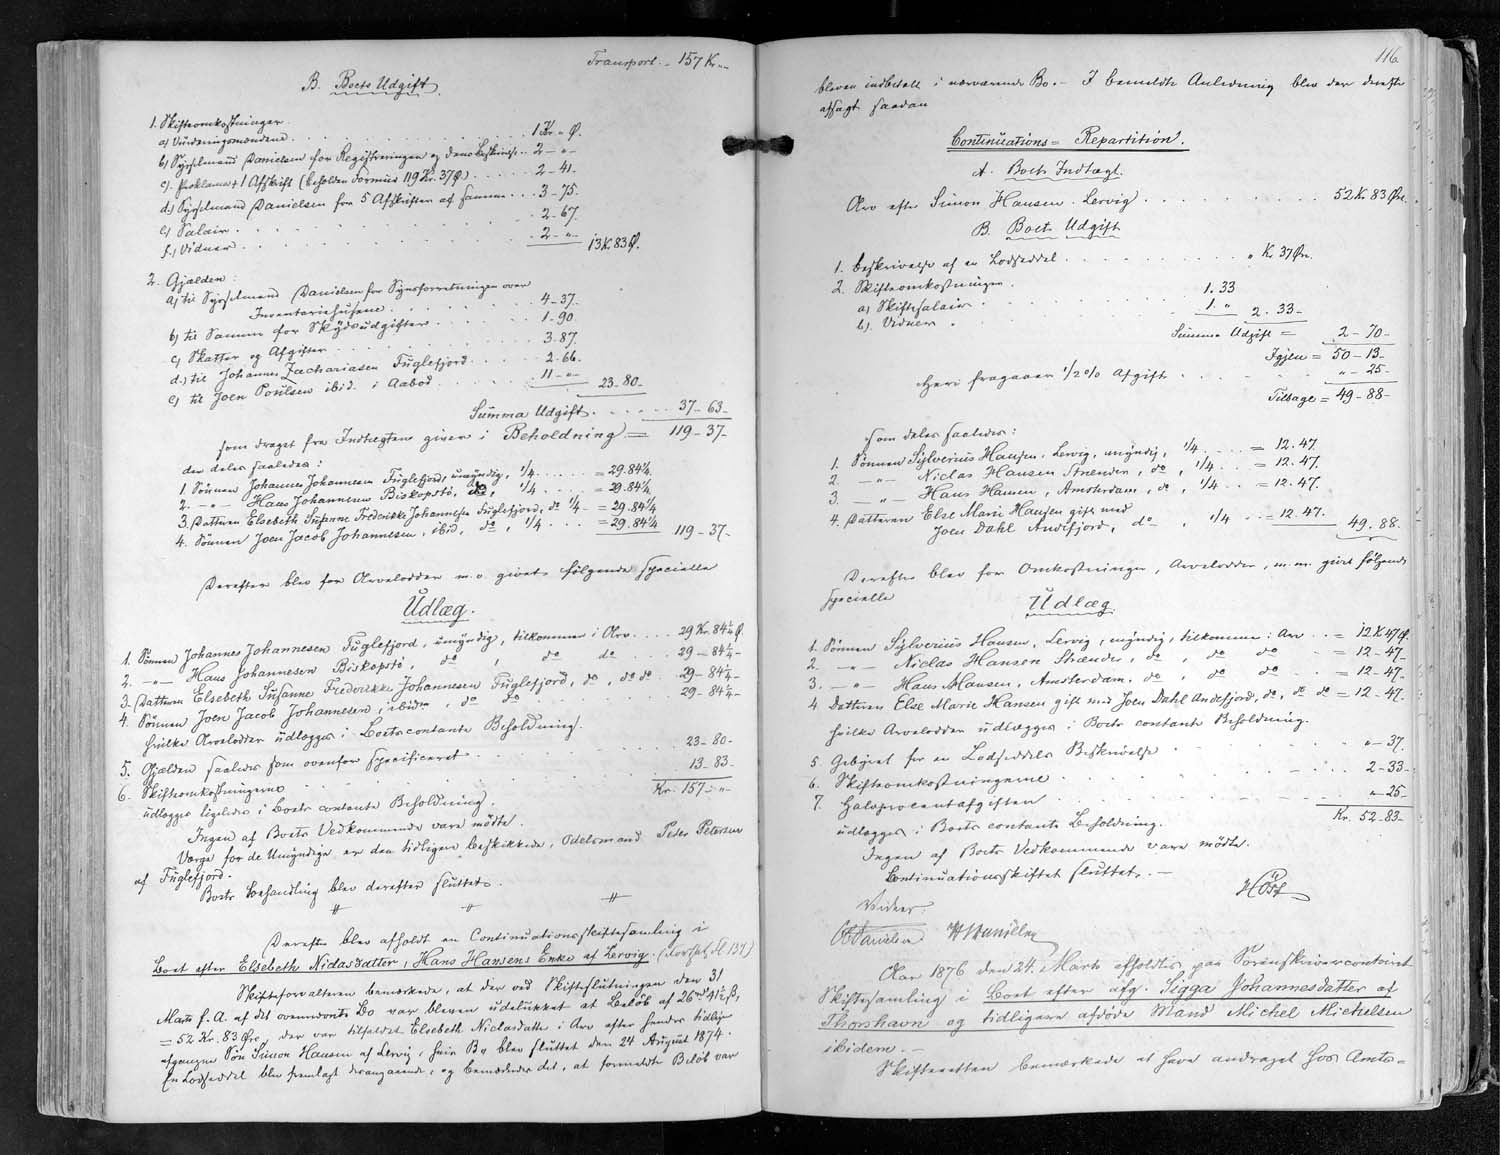 Transport. - 157 Kr. „
B. Boets Udgift.
1. Skifteomkostninger.
a) Vurderingsmændene . . . 1 Kr. „ Ø.
b) Sysselmand Danielsen for Registreringen og dens Beskrivelse . . 2 - „ -
c) Proklama + 1 Afskrift (beholden Formue 119 Kr. 37 Ø) . . . 2 - 41.
d.) Sysselmand Danielsen for 5 Afskrifter af samme . . . 3 - 75.
e) Salair . . . 2 - 67.
f.) Vidner . . . 2 - „ - 13 K. 83 Ø.
2. Gjælden:
a) til Sysselmand Danielsen for Synsforretningen over
Inventariehusene . . . 4 - 37.
b) til Samme for Skydsudgifter . . . 1 - 90.
c) Skatter og Afgifter . . . 3 - 87.
d.) til Johannes Zachariasen Fuglefjord . . . 2 - 66.
e) til Joen Poulsen ibid. i Aabod . . . 11 - „ - 23. 80 -
Summa Udgift . . . 37 - 63 -
som draget fra Indtægten giver i Beholdning = 119 - 37 -
der deles saaledes:
1. Sønnen Johannes Johannesen Fuglefjord, umyndig, 1/4 . . . = 29. 84 1/4.
2. - „ - Hans Johannesen Biskopstø, do, 1/4 . . . = 29. 84 1/4.
3. Datteren Elsebeth Susanne Frederikke Johannesen Fuglefjord, do 1/4 - = 29. 84 1/4
4. Sønnen Joen Jacob Johannesen, ibid, do, 1/4 . . = 29. 84 1/4 119 - 37 -
Derefter blev for Arvelodder m. v. givet følgende specielle
Udlæg.
1. Sønnen Johannes Johannesen Fuglefjord, umyndig, tilkommer i Arv . . . 29 Kr. 84 1/4 Ø.
2. - „ - Hans Johannesen Biskopstø, do, do do . . . 29 - 84 1/4 -
3. Datteren Elsebeth Susanne Frederikke Johannesen Fuglefjord, do, do do . . 29 - 84 1/4 -
4. Sønnen Joen Jacob Johannesen, ibidm, do do . . . 29 - 84 1/4 -
hvilke Arvelodder udlægges i Boets contante Beholdning.
5. Gjælden saaledes som ovenfor specificeret . . . 23 - 80 -
6. Skifteomkostningerne . . . 13 - 83 -
udlægges ligeledes i Boets contante Beholdning. Kr. 157 - „ -
Ingen af Boets Vedkommende vare mødte.
Værge for de Umyndige er den tidligere beskikkede, Odelsmand Peder Petersen
af Fuglefjord.
Boets Behandling blev derefter sluttet.
Derefter blev afholdt en Continuationsskiftesamling i
Boet efter Elsebeth Niclasdatter, Hans Hansens Enke af Lervig. (Forts. fol 137)
Skifteforvalteren bemærkede, at der ved Skifteslutningen den 31
Marts f. A. af det ovennævnte Bo var bleven udelukket et Beløb af 26 rd 41 1/2 ß,
= 52 Kr. 83 Øre, der var tilfaldet Elsebeth Niclasdatter i Arv efter hendes tidligere
afgangne Søn Simon Hansen af Lervig, hvis Bo blev sluttet den 24 August 1874.
En Lodseddel blev fremlagt desangaaende, og bemærkedes det, at formeldte Beløb var
116
bleven indbetalt i nærværende Bo. - I bemeldte Anledning blev der derefter
afsagt saadan
Continuations = Repartition.
A. Boets Indtægt.
Arv efter Simon Hansen. Lervig . . . 52 Kr. 83 Øre.
B. Boets Udgift
1. Beskrivelse af en Lodseddel . . . „ Kr. 37 Øre.
2. Skifteomkostninger.
a) Skiftesalair . . . 1. 33
b) Vidner . . . 1. „ 2. 33 -
Summa Udgift = 2 - 70 -
Igjen = 50 - 13 -
Heri fragaaer 1/2 % Afgift . . . „ - 25 -
Tilbage = 49 - 88 -
som deles saaledes:
1. Sønnen Sylverius Hansen, Lervig, myndig, 1/4 . . = 12. 47.
2. - „ - Niclas Hansen Strænder, do, 1/4 . . = 12. 47.
3. - „ - Hans Hansen, Amsterdam, do, 1/4 . . = 12. 47.
4. Datteren Else Marie Hansen gift med
Joen Dahl Andefjord, do, 1/4 . . = 12. 47. 49. 88.
Derefter blev for Omkostninger, Arvelodder, m. m. givet følgende
specielle
Udlæg.
1. Sønnen Sylverius Hansen, Lervig, myndig, tilkommer i Arv . . = 12 K. 47 Ø.
2. - „ - Niclas Hansen Strænder, do, do do . = 12 - 47 -
3. - „ - Hans Hansen, Amsterdam, do, do do . = 12 - 47 -
4 Datteren Else Marie Hansen gift med Joen Dahl Andefjord, do, do do = 12 - 47.
hvilke Arvelodder udlægges i Boets contante Beholdning.
5 Gebyret for en Lodseddels Beskrivelse . . . „ - 37.
6. Skifteomkostningerne . . . 2 - 33 -
7. Halvprocentafgiften . . . „ - 25 -
udlægges i Boets contante Beholdning. Kr. 52 - 83 -
Ingen af Boets Vedkommende vare mødte.
Continuationsskiftet sluttet. -
Høst
Vidner:
Danielsen
Aar 1876 den 24. Marts afholdtes paa Sorenskrivercontoiret
Skiftesamling i Boet efter afg. Sigga Johannesdatter af
Thorshavn og tidligere afdøde Mand Michel Michelsen
ibidem. -
Skifteretten bemærkede at have andraget hos Amts =